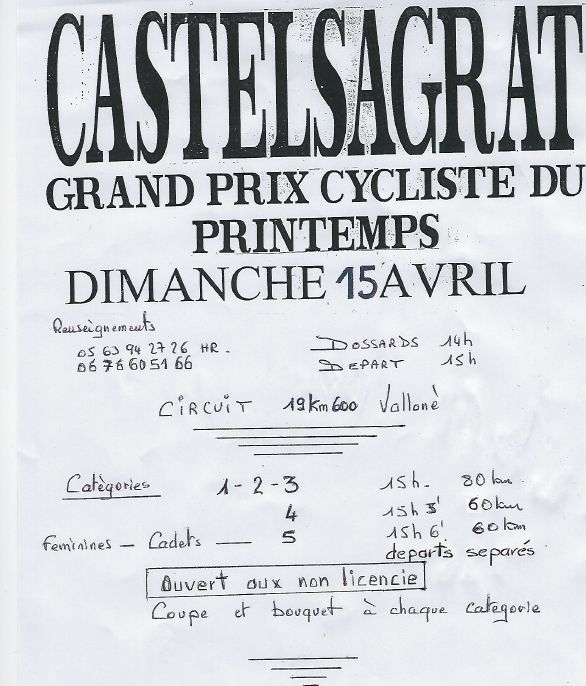 CASTELSAGRAT
GRAND PRIX CYCLISTE DU
PRINTEMPS
DIMANCHE 15 AVRIL
Renseignements
05 63 94 27 26 HR.
06 76 60 51 66
DOSSARDS 14h
DEPART 15h
CIRCUIT 19km600 Vallonè
Catègories 1-2-3 15h. 80 km
4 15h 3' 60km
Feminines - Cadets — 5 15h 6' 60km
departs separés
Ouvert aux non licencie
Coupe et bouquet à chaque categorie